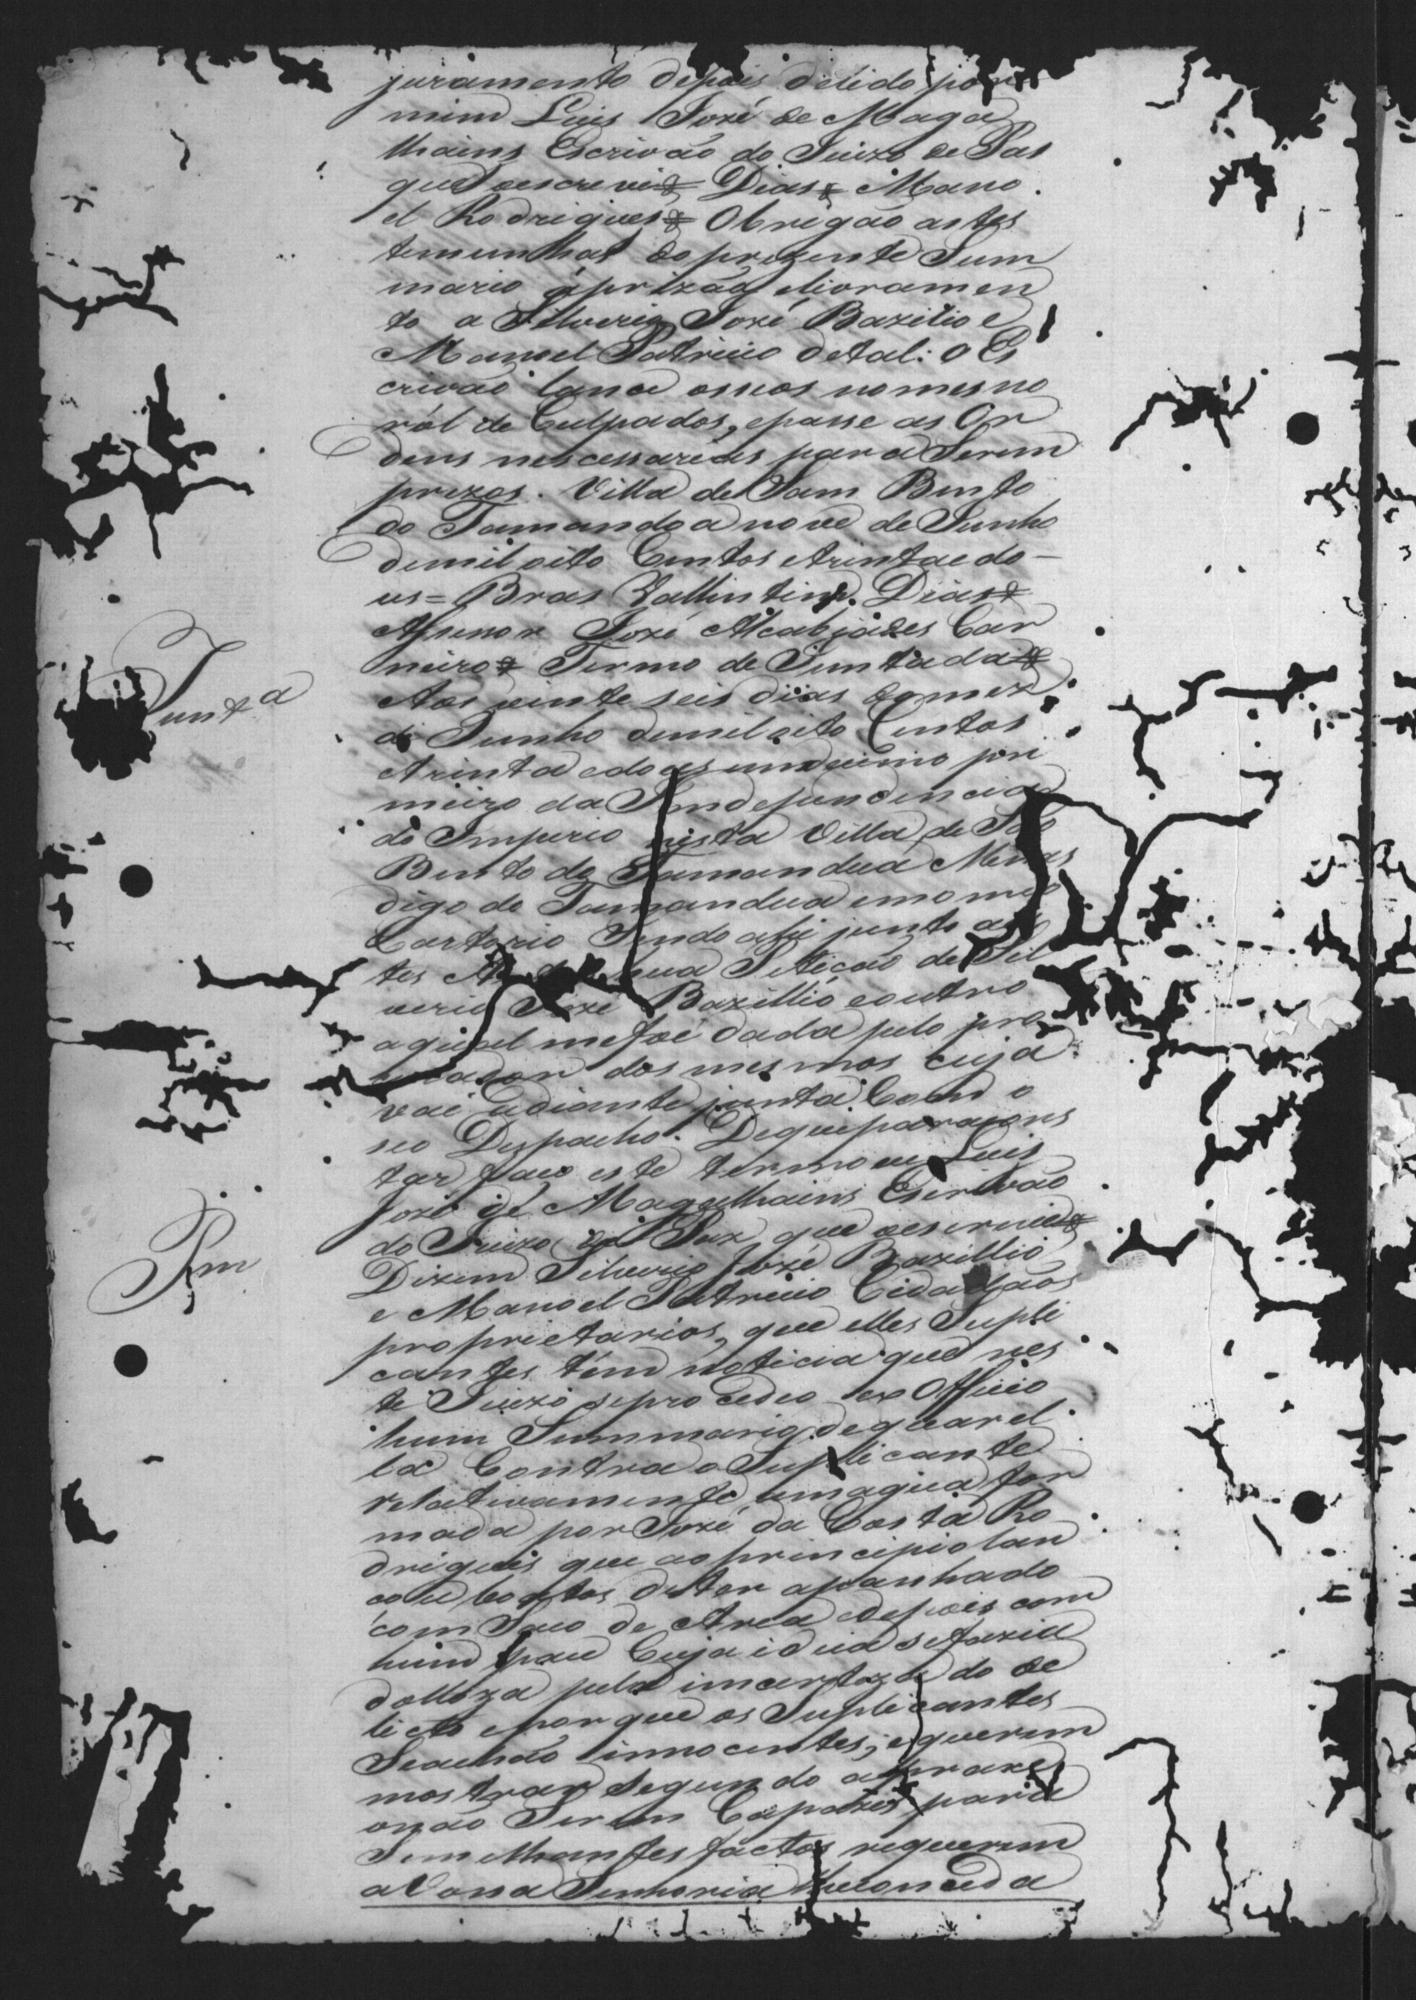 juramento depois delido por
mim Luis José de Maga
lhains Escrivão do Juizo de Pas
que oescrevi Dias Mano
el Rodrigues Obrigão astes
temunhas doprezente Sum
mario áprizão elivramen
to a Silverio José Bazilio e
Manoel Patricio detal: o Es
crivão lance osseos nomes no
ról de Culpados, epasse as Or
dens nescessarias para Serem
prezos. Villa de Sam Bento
do Tamandoa nove de Junho
demil oito Centos etrinta e do
us = Bras Vallintino Dias
Assesor José Alcabiades Car
neiro Termo de Juntada
Junta
Aos vinte seis dias domez
de Junho demil oito Centos
etrinta edous undecimo pri
meiro da Independencia
do Imperio nesta Villa de São
Bento do Tamandua Minas
digo do Tamandua emomeo
Cartorio Sendo ahi junto a
tes Petição de Sil
verio José Bazillio eoutro
aqual mefoi dada pelo pro
curador dos mesmos cuja
vai adiante junta Com o
seo Despacho. Dequeparacons
tar faço este termo eu Luis
José de Magalhains Escrivão
do Juizo de Paz que oescrevi
Pm
Dizem Silverio José Bazillio
e Manoel Patricio Cidadãos
proprietarios, que elles Supli
cantes tem noticia que nes
te Juizo seprocedeo ex Officio
hum Summario dequarel
la Contra o Suplicante
relativamente umagua for
mada por José da Costa Ro
drigues que aoprincipio lan
cou botos deter apanhado
com Saco de Area edepois com
hum pau Cuja ideia sefazia
dolloza pela incerteza do de
licto eporque os Suplicantes
Seachão innocentes, equerem
mostrar segundo apraxe
onão Serem Capazes para
Semelhantes factos requerem
aVossa Senhoria lheconceda